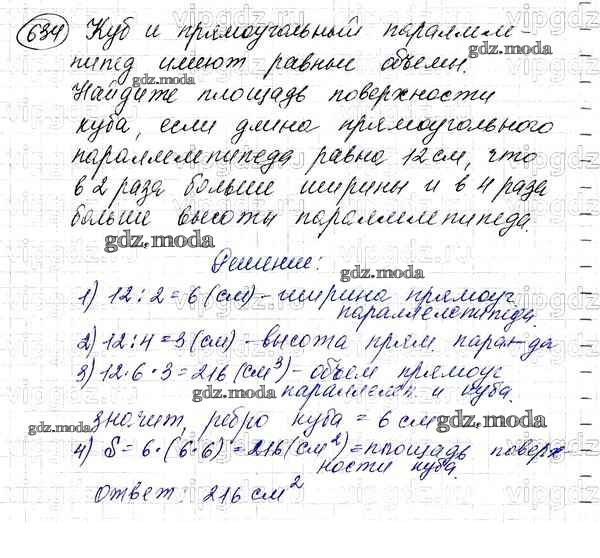 634 Куб и прямоугольный параллеле-
пипед имеют равные объемы.
Найдите площадь поверхности
куба, если длина прямоугольного
параллелепипеда равна 12 см, что
в 2 раза больше ширины и в 4 раза
больше высоты параллелепипеда.
Решение:
1) 12 : 2 = 6 (см) - ширина прямоуг.
параллелепипеда.
2) 12 : 4 = 3 (см) - высота прям. парал-да
3) 12 · 6 · 3 = 216 (см³) - объем прямоуг
параллелеп. и куба.
значит, ребро куба = 6 см
4) S = 6 · (6 · 6) = 216 (см²) = площадь поверх-
ности куба.
ответ: 216 см²
gdz.moda
gdz.moda
gdz.moda
gdz.moda
gdz.moda
gdz.moda
gdz.moda
gdz.moda
gdz.moda
gdz.moda